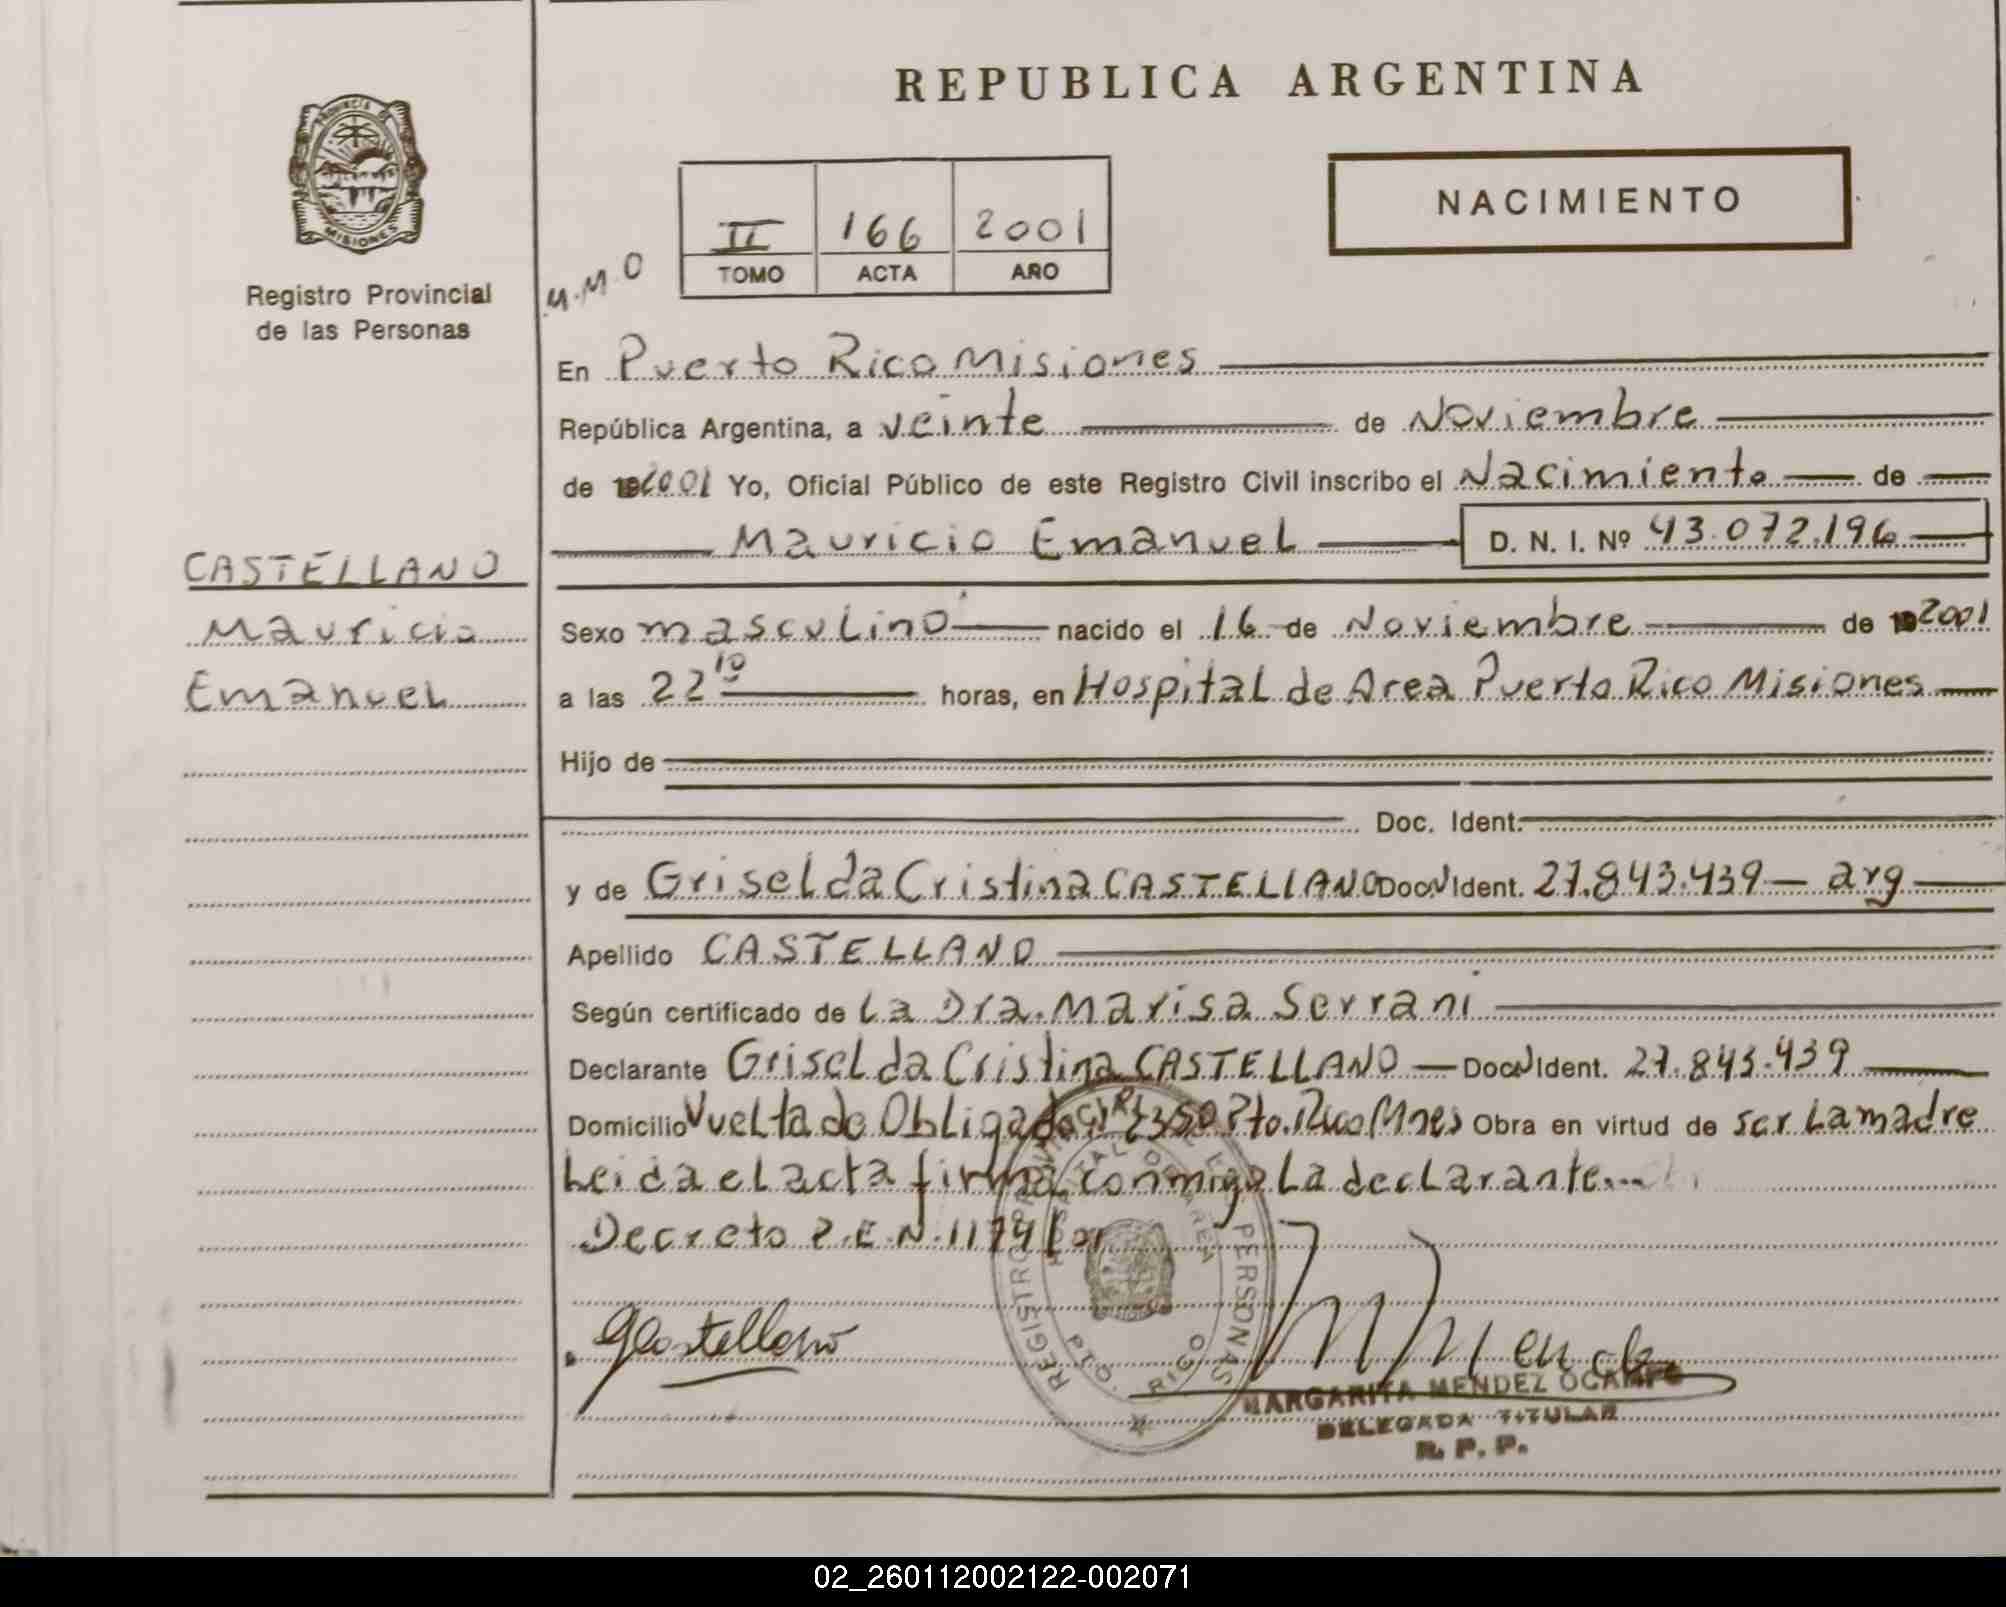 REPUBLICA ARGENTINA
PROVINCIA DE
MISIONES
Registro Provincial
de las Personas
II 166 2001
TOMO ACTA AÑO
NACIMIENTO
M.M.O
En Puerto Rico Misiones
República Argentina, a veinte de Noviembre
de 2001 Yo, Oficial Público de este Registro Civil inscribo el Nacimiento de
Mauricio Emanuel D. N. I. Nº 43.072.196
CASTELLANO
Mauricio
Emanuel
Sexo masculino nacido el 16 de Noviembre de 2001
a las 22 10 horas, en Hospital de Area Puerto Rico Misiones
Hijo de
Doc. Ident.
y de Griselda Cristina CASTELLANO Doc N Ident. 27.843.439 — arg
Apellido CASTELLANO
Según certificado de La Dra. Marisa Serrani
Declarante Griselda Cristina CASTELLANO — Doc N Ident. 27.843.439
Domicilio Vuelta de Obligado Pto. Rico Mnes Obra en virtud de ser La madre
Leida el acta firma conmigo La declarante...
Decreto P.E.N. 1174/01
REGISTRO PERSONAS
HOSPITAL DE AREA
PTO. RICO
GCastellano
MMendez
MARGARITA MENDEZ OCAMPO
DELEGADA TITULAR
R. P. P.
02_260112002122-002071